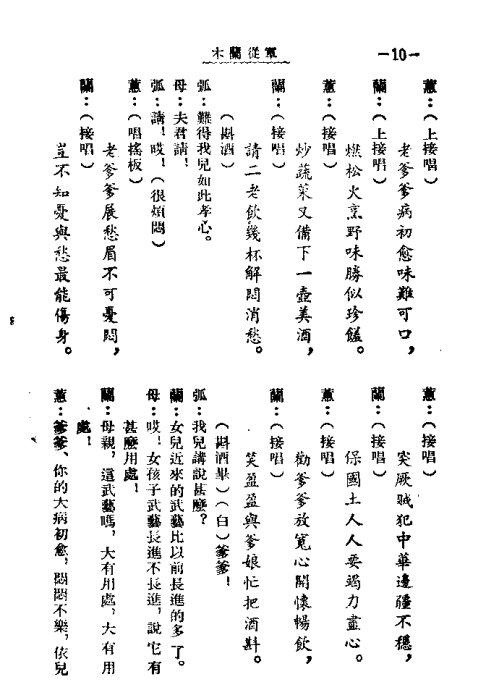 木蘭從軍
—10—
蕙：（上接唱）
老爹爹病初愈味難可口，
蘭：（上接唱）
燃松火烹野味勝似珍饈。
蕙：（接唱）
炒蔬菜又備下一壺美酒，
蘭：（接唱）
請二老飲幾杯解悶消愁。
（斟酒）
弧：難得我兒如此孝心。
母：夫君請！
弧：請！哎！（很煩悶）
蕙：（唱搖板）
老爹爹展愁眉不可憂悶，
蘭：（接唱）
豈不知憂與愁最能傷身。
蕙：（接唱）
突厥賊犯中華邊疆不穩，
蘭：（接唱）
保國土人人要竭力盡心。
蕙：（接唱）
勸爹爹放寬心開懷暢飲，
蘭：（接唱）
笑盈盈與爹娘忙把酒斟。
（斟酒畢）（白）爹爹！
弧：我兒講說甚麼？
蘭：女兒近來的武藝比以前長進的多了。
母：哎，女孩子武藝長進不長進，說它有
甚麼用處！
蘭：母親，這武藝嗎，大有用處，大有用
處！
蕙：爹爹、你的大病初愈，悶悶不樂，依兒